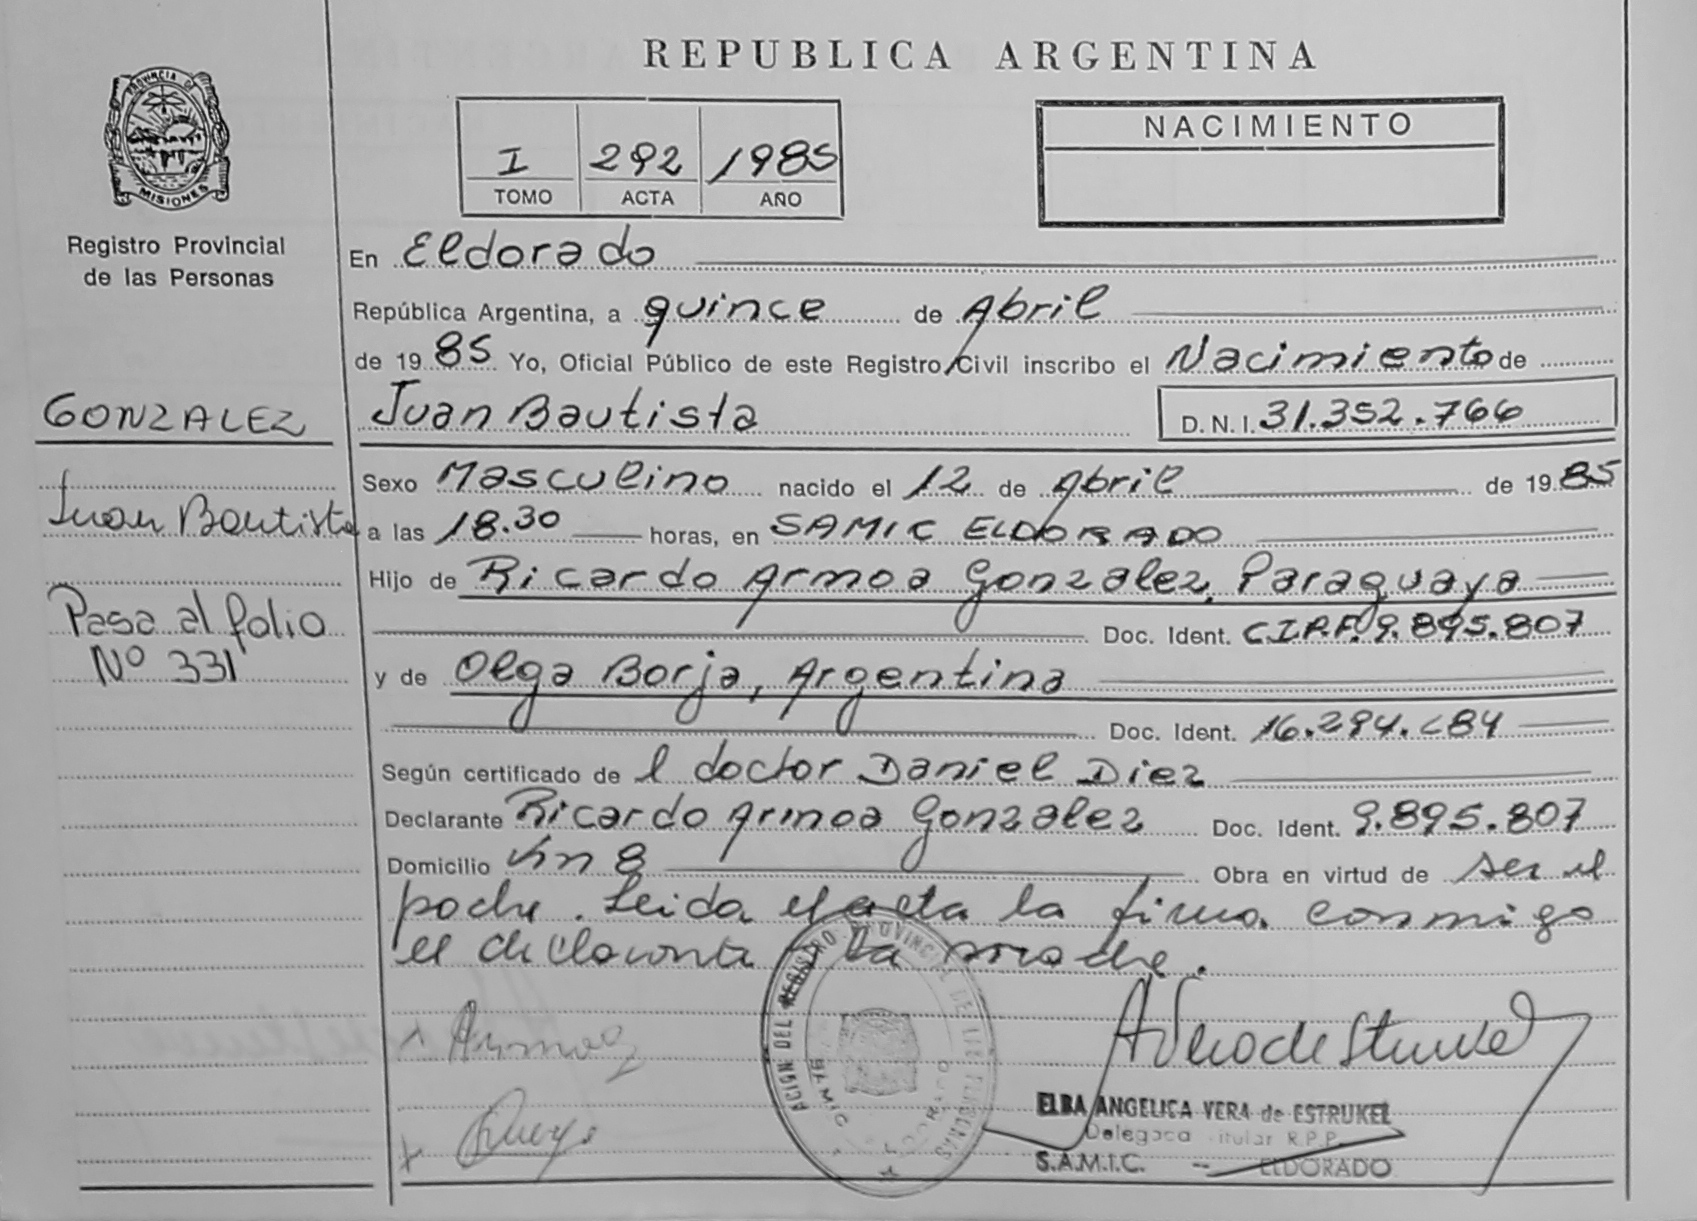 REPUBLICA ARGENTINA
PROVINCIA DE
MISIONES
Registro Provincial
de las Personas
I 292 1985
TOMO ACTA AÑO
NACIMIENTO
En Eldorado
República Argentina, a quince de Abril
de 1985 Yo, Oficial Público de este Registro Civil inscribo el Nacimiento de
GONZALEZ
Juan Bautista D.N.I. 31.352.766
Sexo Masculino nacido el 12 de Abril de 1985
Juan Bautista
a las 18.30 horas, en SAMIC ELDORADO
Hijo de Ricardo Armoa Gonzalez, Paraguaya
Pasa al folio
Nº 331
Doc. Ident. 9.895.807
y de Olga Borja, Argentina
Doc. Ident. 16.294.
Según certificado de l doctor Daniel Diez
Declarante Ricardo Armoa Gonzalez Doc. Ident. 9.895.807
Domicilio Km 8 Obra en virtud de ser el
padre. Leida el acta la firma conmigo
el declarante y la madre.
ELBA ANGELICA VERA de ESTRUKEL
Delegada Titular R.P.P.
S.A.M.I.C. -- ELDORADO